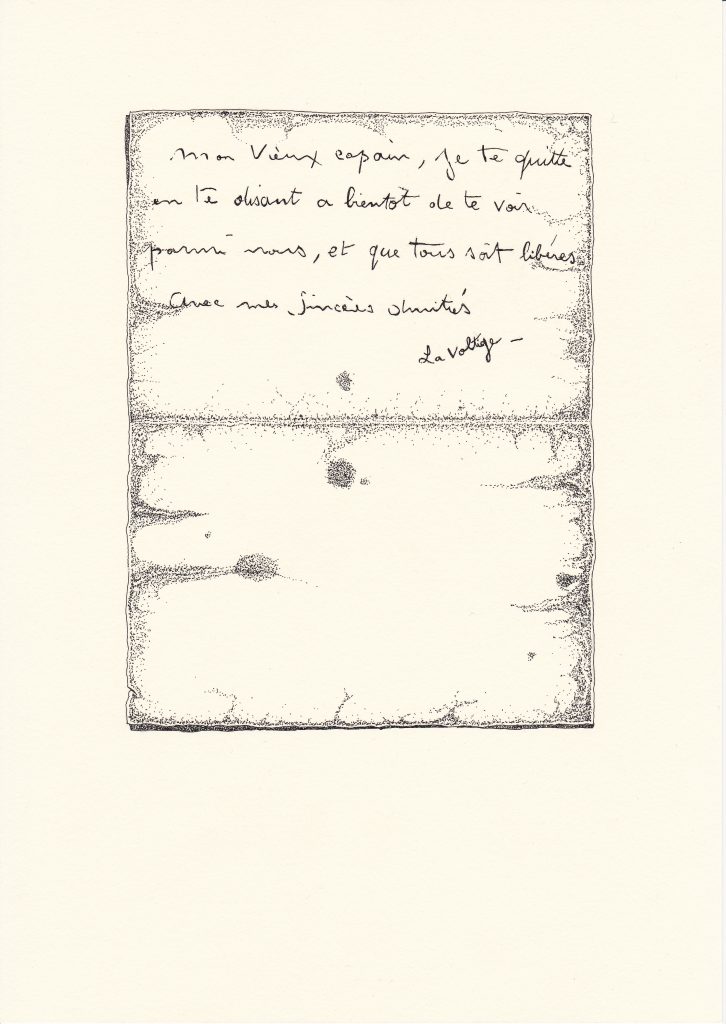 mon Vieux copain, je te quitte
en te disant a bientot de te voir
parmi nous, et que tous soit libérés
Avec mes sincères Amitiés
La Voltige -